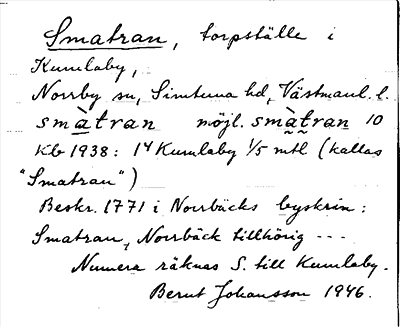 Smatran, torpställe i
Kumlaby,
Norrby sn, Simtuna hd, Västmanl. l.
smàtran möjl. smàtran 10
Kb 1938: 1⁴ Kumlaby 1/5 mtl (kallas
"Smatran")
Beskr. 1771 i Norrbäcks byskrin:
Smatran, Norrbäck tillhörig ---
Numera räknas S. till Kumlaby.
Bernt Johansson 1946.